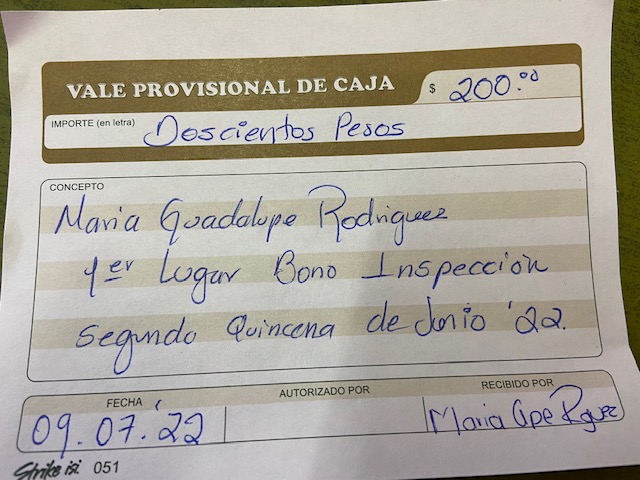 VALE PROVISIONAL DE CAJA
$ 200.00
IMPORTE (en letra)
Doscientos Pesos
CONCEPTO
Maria Guadalupe Rodriguez
1er Lugar Bono Inspección
Segunda Quincena de Junio '22.
FECHA
AUTORIZADO POR
RECIBIDO POR
09.07.22
Maria Gpe Rguez
051